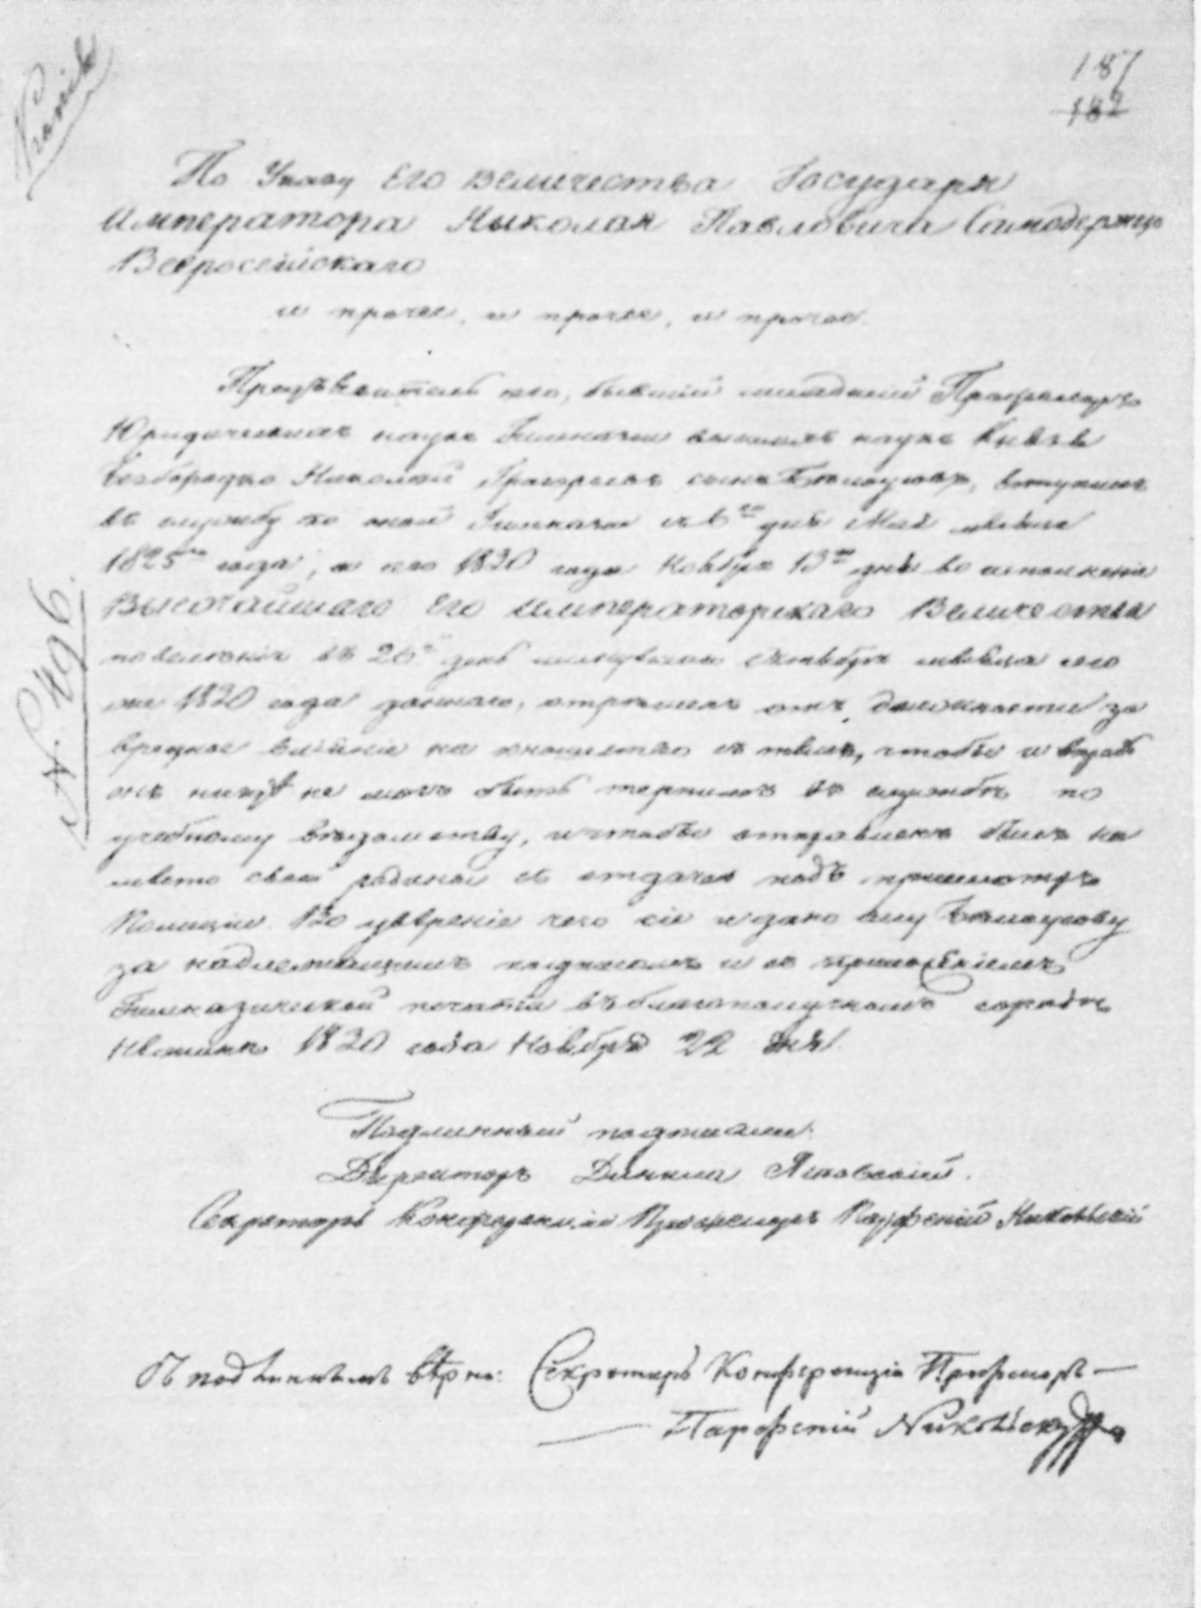 Копія
187
182
По Указу Его Величества Государя
Императора Николая Павловича Самодержца
Всероссійскаго
и прочее, и прочее, и прочее.
Предъявитель сего, бывшій младшій Профессоръ
Юридическихъ наукъ Гимназіи высшихъ наукъ Князя
Безбородко Николай Григорьевъ сынъ Бѣлоусовъ, вступилъ
въ службу по оной Гимназіи съ 6го дня Мая мѣсяца
1825го года, а сего 1830 года Ноября 13го дня во исполненіе
Высочайшаго Его Императорскаго Величества
повелѣнія въ 26й день минувшаго Октября мѣсяца сего
же 1830 года даннаго, отрѣшенъ отъ должности за
вредное вліяніе на юношество съ тѣмъ, чтобы и впредь
онъ нигдѣ не могъ быть терпимъ въ службѣ по
учебному вѣдомству, и чтобы отправленъ былъ на
мѣсто своей родины съ отдачею подъ присмотръ
Полиціи. Во увѣреніе чего сіе и дано ему Бѣлоусову
за надлежащимъ подписомъ и съ приложеніемъ
Гимназической печати въ благополучномъ городѣ
Нѣжинѣ 1830 года Ноября 22 дня.
Подлинный подписали:
Директоръ Данило Ясновскій.
Секретарь Конференціи Профессоръ Парфеній Никольскій
Съ подлиннымъ вѣрно: Секретарь Конференціи Профессоръ —
— Парфеній Никольскій
№ 496.